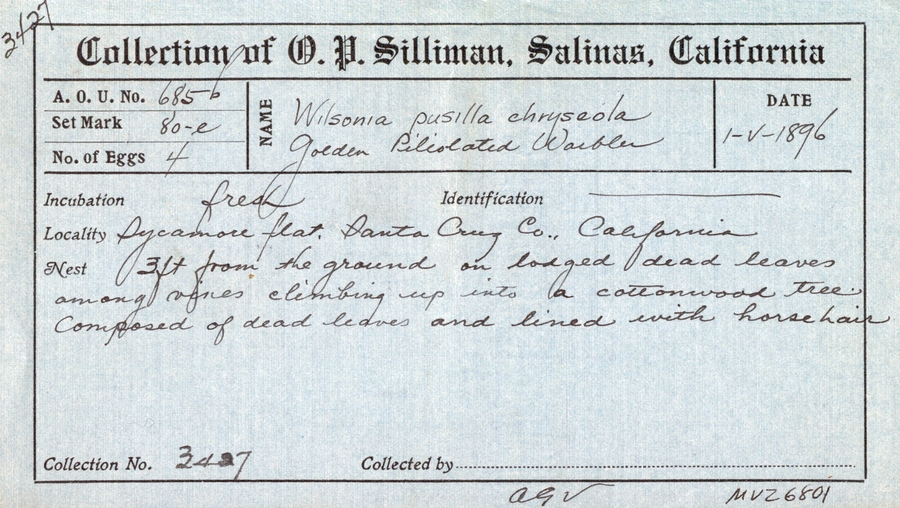 3427
Collection of O. P. Silliman, Salinas, California
A. O. U. No. 685b
Set Mark 80-e
No. of Eggs 4
NAME
Wilsonia pusilla chryseola
Golden Piliolated Warbler
DATE
1-V-1896
Incubation fresh Identification
Locality Sycamore flat. Santa Cruz Co., California
Nest 3ft from the ground on lodged dead leaves
among vines climbing up into a cottonwood tree.
Composed of dead leaves and lined with horsehair
Collection No. 3427 Collected by
MVZ6801